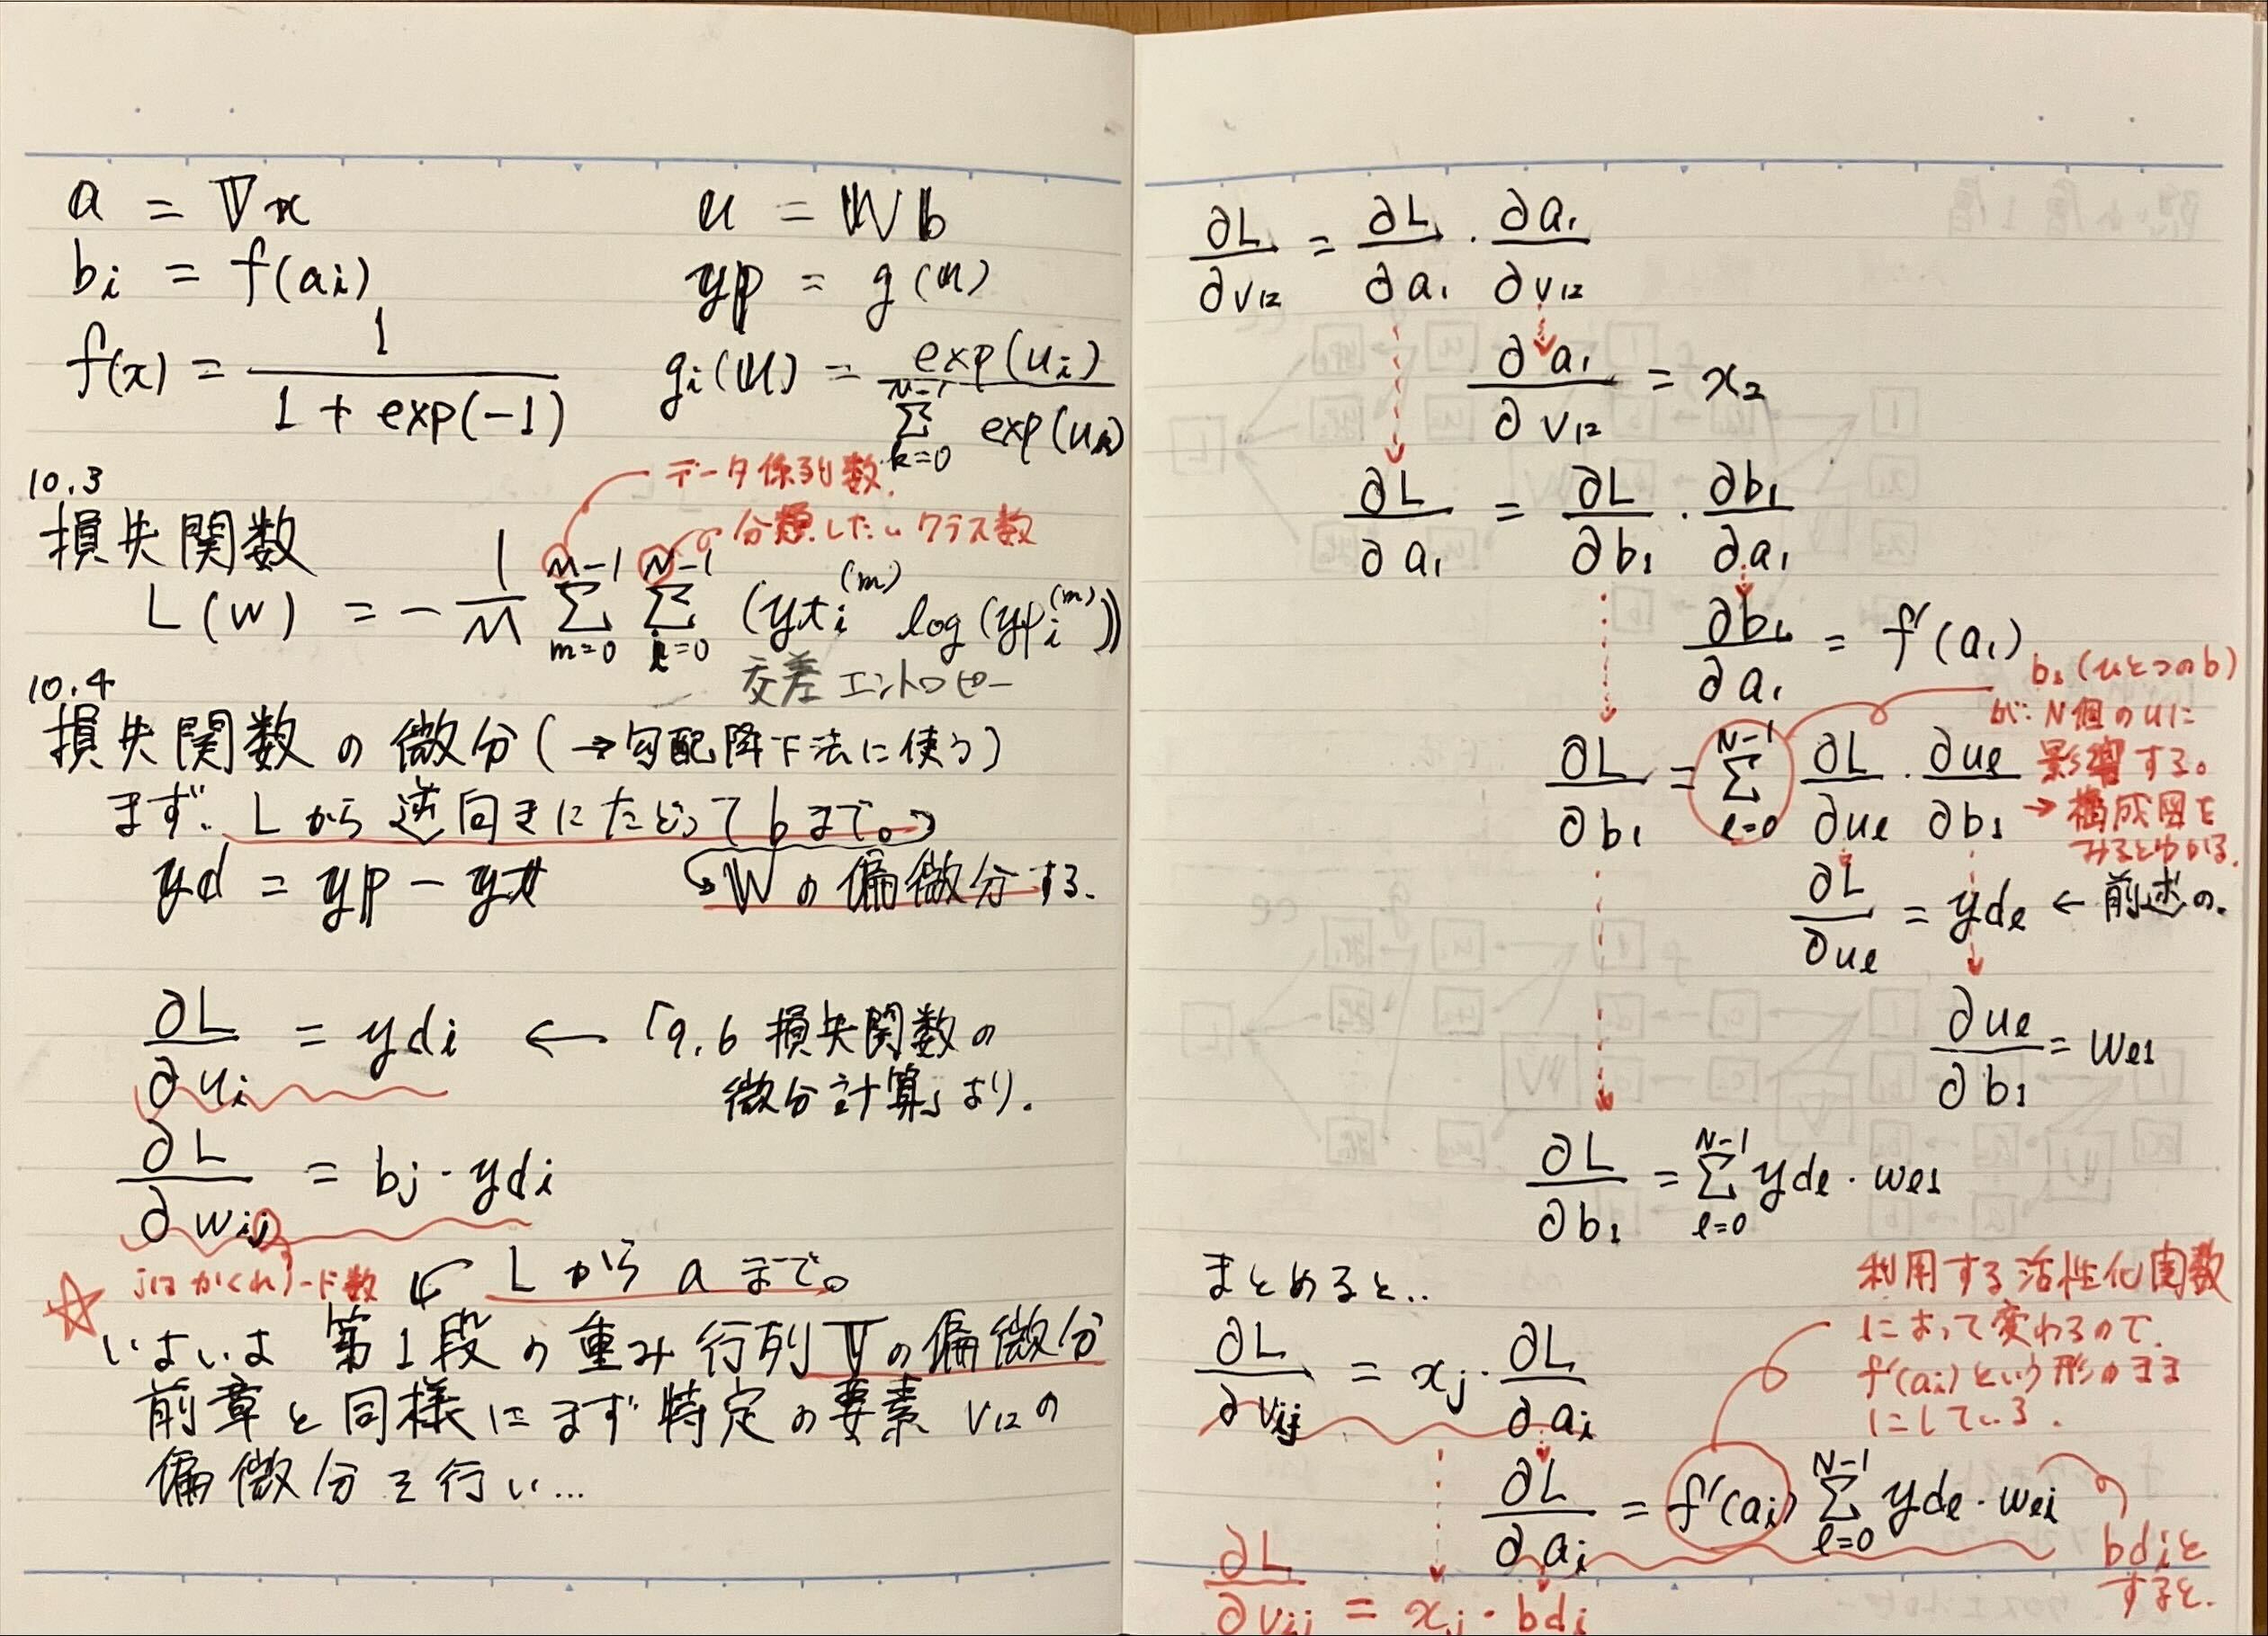 a = Vx
u = Wb
bi = f(ai)
yp = g(u)
f(x) = 1 / (1 + exp(-1))
gi(u) = exp(ui) / Σ[k=0, N-1] exp(uk)
10.3
データ係列数.
損失関数
分類したいクラス数
L(w) = - 1/M Σ[m=0, M-1] Σ[i=0, N-1] (yti^(m) log(ypi^(m)))
交差エントロピー
10.4
損失関数の微分(→勾配降下法に使う)
まず、Lから逆向きにたどってbまで。
yd = yp - yt
Wの偏微分する.
∂L/∂ui = ydi ← 「9.6 損失関数の
微分計算」より.
∂L/∂wij = bj・ydi
jはかくれノード数
Lからaまで。
☆
いよいよ 第1段の重み行列Vの偏微分
前章と同様にまず特定の要素 v12の
偏微分を行い...
∂L/∂v12 = ∂L/∂a1・∂a1/∂v12
∂a1/∂v12 = x2
∂L/∂a1 = ∂L/∂b1・∂b1/∂a1
∂b1/∂a1 = f'(a1)
b1(ひとつのb)
が N個のulに
影響する。
→構成図を
みるとわかる.
∂L/∂b1 = Σ[l=0, N-1] ∂L/∂ul・∂ul/∂b1
∂L/∂ul = ydl ← 前述の.
∂ul/∂b1 = wl1
∂L/∂b1 = Σ[l=0, N-1] ydl・wl1
まとめると..
利用する活性化関数
によって変わるので.
f'(ai)という形のまま
にしている.
∂L/∂vij = xj・∂L/∂ai
∂L/∂ai = f'(ai) Σ[l=0, N-1] ydl・wli
bdiと
すると.
∂L/∂vij = xj・bdi